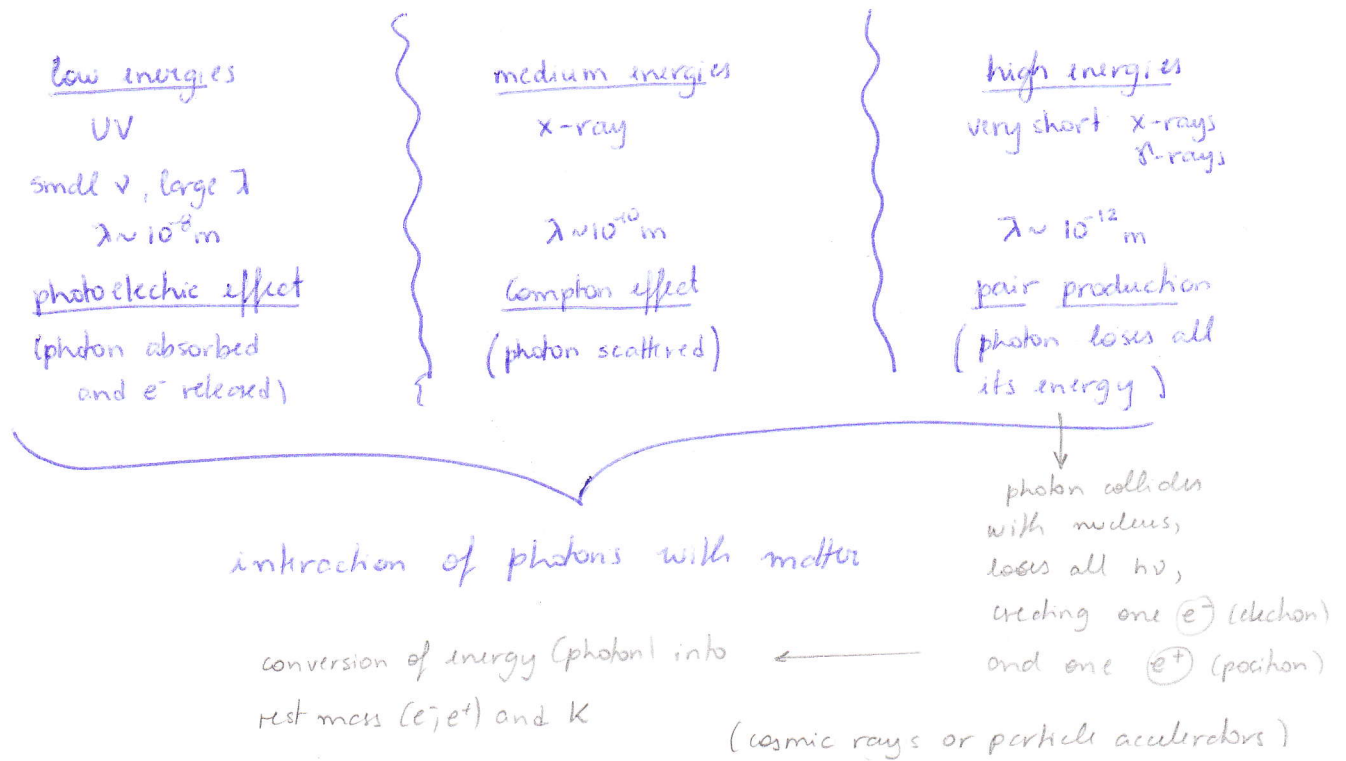 low energies
UV
small ν, large λ
λ ~ 10⁻⁸ m
photoelectric effect
(photon absorbed
and e⁻ released)
medium energies
x-ray
λ ~ 10⁻¹⁰ m
Compton effect
(photon scattered)
high energies
very short x-rays
γ-rays
λ ~ 10⁻¹² m
pair production
(photon loses all
its energy)
interaction of photons with matter
photon collides
with nucleus,
loses all hν,
creating one e⁻ (electron)
and one e⁺ (positron)
conversion of energy (photon) into
rest mass (e⁻, e⁺) and K
(cosmic rays or particle accelerators)